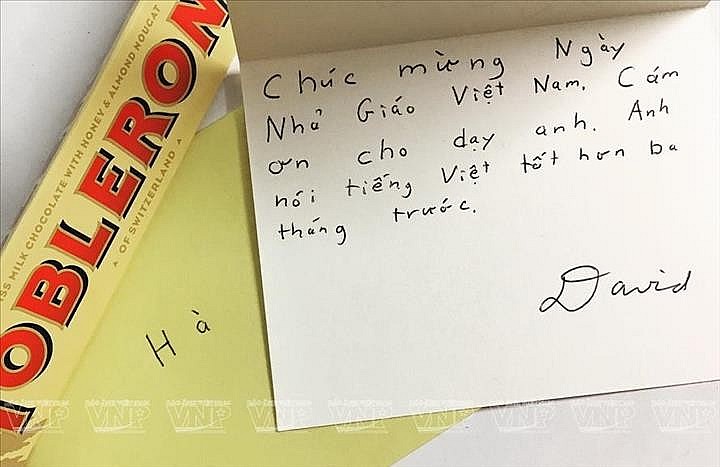 OBLERON
ISS MILK CHOCOLATE WITH HONEY & ALMOND NOUGAT
OF SWITZERLAND
Chúc mừng Ngày
Nhả Giáo Việt Nam. Cám
ơn cho dạy anh. Anh
nói tiếng Việt tốt hơn ba
tháng trước.
David
Hà
VNP VNP VNP VNP VNP VNP VNP VNP